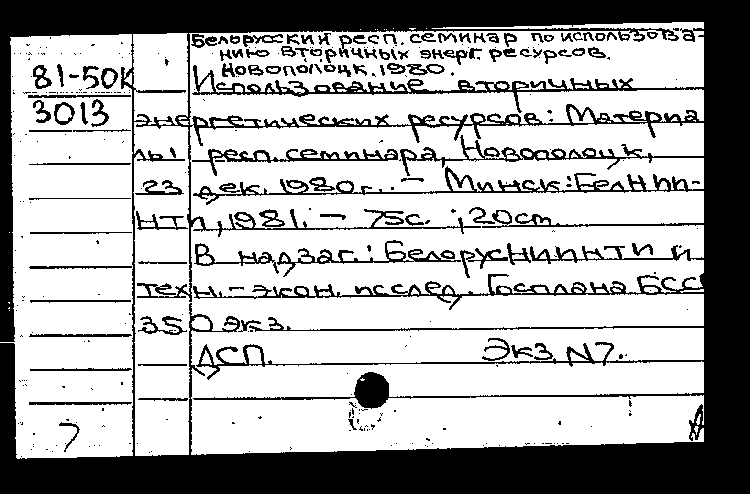 Белорусский респ. семинар по использова-
нию вторичных энерг. ресурсов.
Новополоцк. 1980.
81-50К
3013
Использование вторичных
энергетических ресурсов: Материа
лы респ. семинара, Новополоцк,
23 дек. 1980г.. - Минск: БелНИИ-
НТИ, 1981. - 75с. ; 20см.
В надзаг.: БелорусНИИНТИ и
техн.-экон. исслед. Госплана БССР
350 экз.
ДСП. Экз. N7.
7